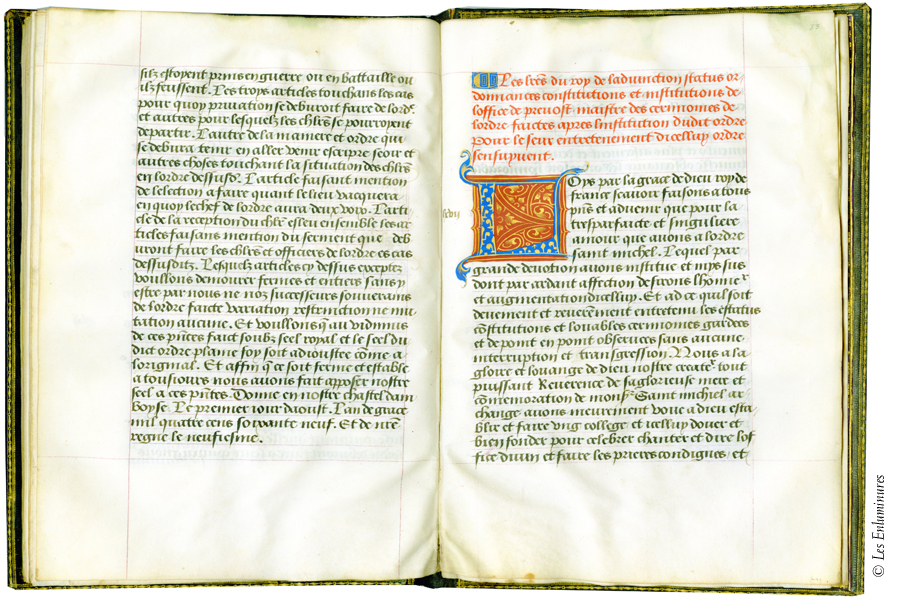 silz estoyent prins en guerre ou en battaille ou
ilz feussent. Les troys articles touchans les cas
pour quoy privation se debvroit faire de lord.
et autres pour lesquelz les chlrs se pourroyent
departir. Lautre de la maniere et ordre qui
se debvra tenir en aller venir escripre seoir et
autres choses touchant la situation des chlrs
en lordre dessusd. Larticle faisant mention
de lelection a faire quant le lieu vacquera
en quoy le chef de lordre aura deux voix. Larti
cle de la reception du chlr esleu ensemble les ar
ticles faisans mention du serment que deb
vront faire les chlrs et officiers de lordre es cas
dessusditz. Lesquelz articles cy dessus exceptez
voullons demourer fermes et entiers sans y
estre par nous ne noz successeurs souverains
de lordre faicte variation restrinction ne mu
tation aucune. Et voullons q au vidimus
de ces pntes faict soubz seel royal et le seel du
dict ordre plaine foy soit adioustee come a
loriginal. Et affin q ce soit ferme et estable
a tousiours nous avons fait apposer nostre
seel a ces pntes. Donne en nostre chastel dam
boyse. Le premier iour daoust. Lan de grace
mil quatre cens soixante neuf. Et de nre
regne le neufiesme.
Les lres du roy de ladiunction status or
donnances constitutions et institutions de
loffice de prevost maistre des cerimonies de
lordre faictes apres linstitution dudit ordre
Pour le seur entretenement dicelluy ordre
sensuyvent.
Loys par la grace de dieu roy de
france scavoir faisons a tous
pns et advenir que pour la
tresparfaicte et singuliere
amour que avons a lordre
saint michel. Lequel par
grande devotion avons institue et mys sus
dont par ardant affection desirons lhonneur
et augmentation dicelluy. Et ad ce quil soit
deuement et reveremment entretenu les estatus
constitutions et louables cerimonies gardees
et de point en point observees sans aucune
interruption et transgression. Nous a la
gloire et louange de dieu nostre creatr tout
puissant Reverence de sa glorieuse mere et
comemoration de monsr Saint michiel ar
change avons meurement voue a dieu esta
blir et faire ung college et icelluy douer et
bien fonder pour celebrer chanter et dire lof
fice divin et faire les prieres condignes et
© Les Enluminures